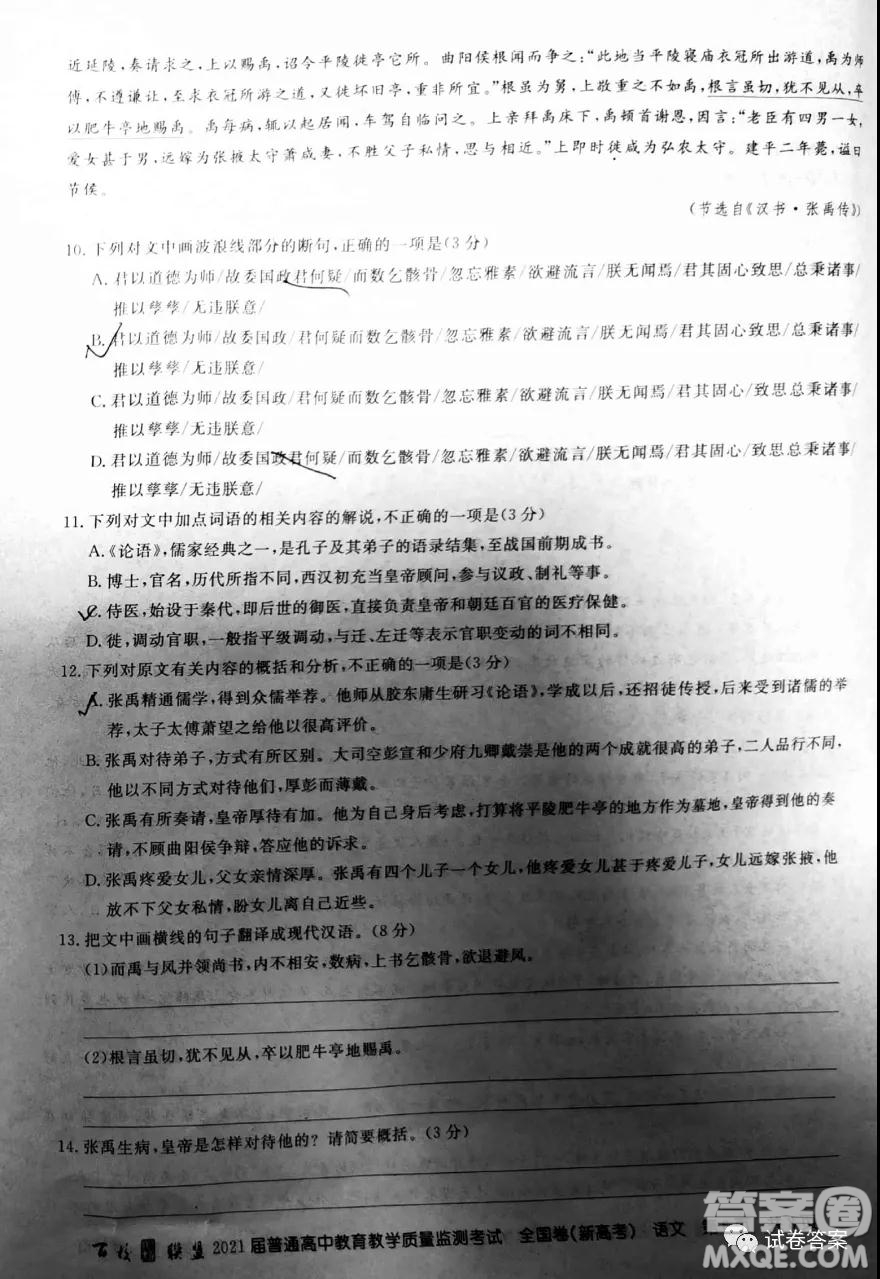 近延陵，奏请求之，上以赐禹，诏令平陵徙亭它所。曲阳侯根闻而争之：“此地当平陵寝庙衣冠所出游道，禹为师
傅，不遵谦让，至求衣冠所游之道，又徙坏旧亭，重非所宜。”根虽为舅，上敬重之不如禹，根言虽切，犹不见从，卒
以肥牛亭地赐禹。禹每病，辄以起居闻，车驾自临问之。上亲拜禹床下，禹顿首谢恩，因言：“老臣有四男一女，
爱女甚于男，远嫁为张掖太守萧咸妻，不胜父子私情，思与相近。”上即时徙咸为弘农太守。建平二年薨，谥曰
节侯。
（节选自《汉书·张禹传》）
10. 下列对文中画波浪线部分的断句，正确的一项是（3 分）
A. 君以道德为师/故委国政君何疑/而数乞骸骨/忽忘雅素/欲避流言/朕无闻焉/君其固心致思/总秉诸事/
推以孳孳/无违朕意/
B. 君以道德为师/故委国政/君何疑而数乞骸骨/忽忘雅素/欲避流言/朕无闻焉/君其固心致思/总秉诸事/
推以孳孳/无违朕意/
C. 君以道德为师/故委国政/君何疑而数乞骸骨/忽忘雅素/欲避流言/朕无闻焉/君其固心/致思总秉诸事/
推以孳孳/无违朕意/
D. 君以道德为师/故委国政君何疑/而数乞骸骨/忽忘雅素/欲避流言/朕无闻焉/君其固心/致思总秉诸事/
推以孳孳/无违朕意/
11. 下列对文中加点词语的相关内容的解说，不正确的一项是（3 分）
A.《论语》，儒家经典之一，是孔子及其弟子的语录结集，至战国前期成书。
B. 博士，官名，历代所指不同，西汉初充当皇帝顾问，参与议政、制礼等事。
C. 侍医，始设于秦代，即后世的御医，直接负责皇帝和朝廷百官的医疗保健。
D. 徙，调动官职，一般指平级调动，与迁、左迁等表示官职变动的词不相同。
12. 下列对原文有关内容的概括和分析，不正确的一项是（3 分）
A. 张禹精通儒学，得到众儒举荐。他师从胶东庸生研习《论语》，学成以后，还招徒传授，后来受到诸儒的举
荐，太子太傅萧望之给他以很高评价。
B. 张禹对待弟子，方式有所区别。大司空彭宣和少府九卿戴崇是他的两个成就很高的弟子，二人品行不同，
他以不同方式对待他们，厚彭而薄戴。
C. 张禹有所奏请，皇帝厚待有加。他为自己身后考虑，打算将平陵肥牛亭的地方作为墓地，皇帝得到他的奏
请，不顾曲阳侯争辩，答应他的诉求。
D. 张禹疼爱女儿，父女亲情深厚。张禹有四个儿子一个女儿，他疼爱女儿甚于疼爱儿子，女儿远嫁张掖，他
放不下父女私情，盼女儿离自己近些。
13. 把文中画横线的句子翻译成现代汉语。（8 分）
(1)而禹与凤并领尚书，内不相安，数病，上书乞骸骨，欲退避凤。
(2)根言虽切，犹不见从，卒以肥牛亭地赐禹。
14. 张禹生病，皇帝是怎样对待他的？请简要概括。（3 分）
百校 联盟 2021 届普通高中教育教学质量监测考试 全国卷（新高考） 语文
答案圈
MXQE.COM
试卷答案